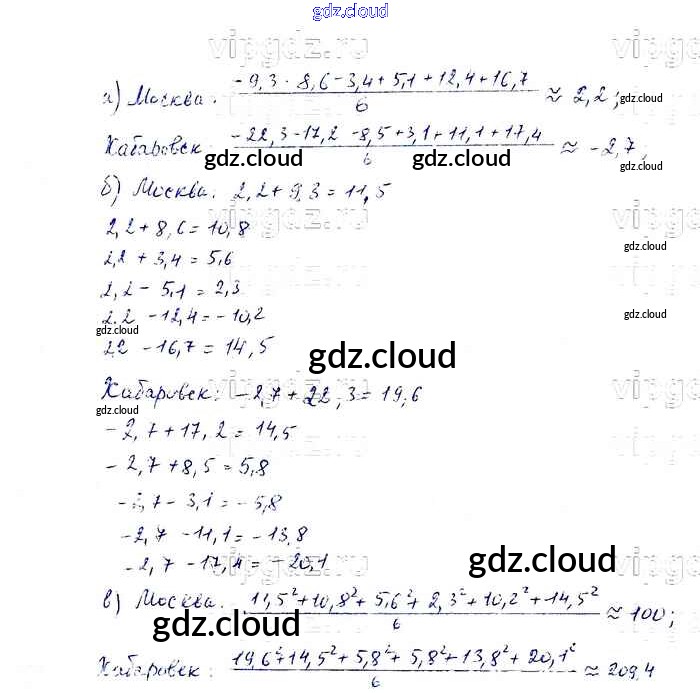 gdz.cloud
vipgdz.ru vipgdz
а) Москва: (-9,3 - 8,6 - 3,4 + 5,1 + 12,4 + 16,7)/6 ≈ 2,2;
gdz.cloud
Хабаровск: (-22,3 - 17,2 - 8,5 + 3,1 + 11,1 + 17,4)/6 ≈ -2,7;
gdz.cloud gdz.cloud gdz.cloud
б) Москва: 2,2 + 9,3 = 11,5
2,2 + 8,6 = 10,8
gdz.cloud
2,2 + 3,4 = 5,6
2,2 - 5,1 = 2,3
2,2 - 12,4 = -10,2
gdz.cloud gdz.cloud
22 - 16,7 = 14,5
gdz.cloud
Хабаровск: -2,7 + 22,3 = 19,6
gdz.cloud
-2,7 + 17,2 = 14,5
-2,7 + 8,5 = 5,8
-2,7 - 3,1 = -5,8
-2,7 - 11,1 = -13,8
-2,7 - 17,4 = -20,1
gdz.cloud
в) Москва: (11,5² + 10,8² + 5,6² + 2,3² + 10,2² + 14,5²)/6 ≈ 100;
gdz.cloud
Хабаровск: (19,6² + 14,5² + 5,8² + 5,8² + 13,8² + 20,1²)/6 ≈ 209,4